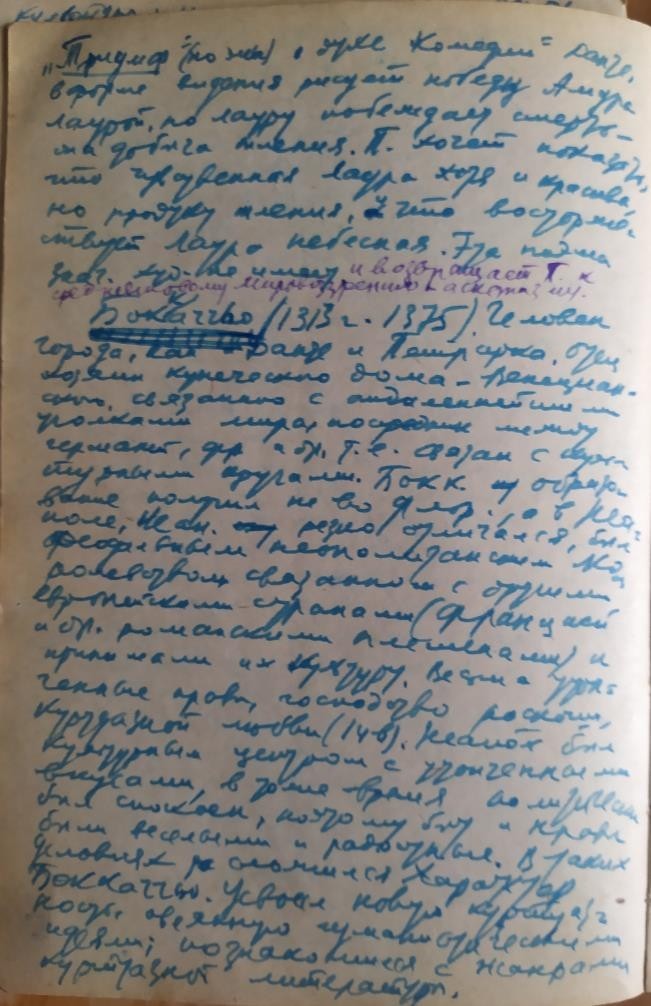 „Триумф" (поэма) в духе „Комедии" Данте,
в форме видения рисует победу Амура
Лаурой, но Лауру побеждает смерть –
тления. П. хочет показать,
что чувственная Лаура хотя и красива,
но продукт тления, и что восторже-
ствует Лаура небесная. Эта поэма
знач. худ. не имеет и возвращает П. к
средневековому мировоззрению – аскетизм.
Боккаччьо (1313 г. - 1375). Человек
города, как и Данте и Петрарка, отец
хозяин купеческого дома – Венециан-
ского, связанного с отдаленнейшими
уголками мира, посредник между
герман, фр. и др. Т.е. связан с
кругами. Бокк. образо-
вание получил не во Флор., а в Неа-
поле, Неап. резко отличался, был
феодальным неаполитанским ко-
ролевством связанном с другими
европейскими странами (Францией
и др. романскими племенами) и
принимали их культуру. Весьма утон-
ченные нравы, господство роскоши,
куртуазной любви (14 в). Неаполь был
культурным центром с утонченными
вкусами, в тоже время политически
был спокоен, поэтому быт и нравы
были веселыми и радостные. В таких
условиях сложился характер
Боккаччьо. Усвоил новую куртуаз-
ность овеянную гуманистическими
идеями; познакомился с жанрами
куртуазной литературы.